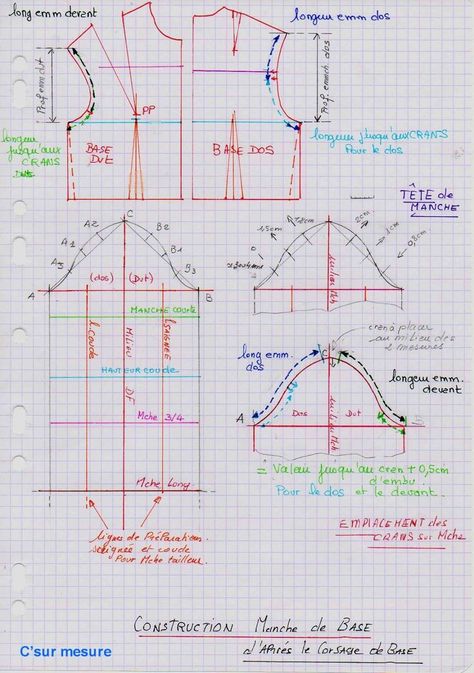 long emm devent
longeur emm dos
Prof. emm dvt
Prof. emmch dos
PP
longeur
jusqu'aux
CRANS
Dvt
BASE
Dvt
BASE DOS
longeur jusqu'aux CRANS
Pour le dos
TÊTE de
MANCHE
C
A2
B2
A1
B1
A3
B3
(dos)
(Dvt)
A
B
1,5cm
2cm
1cm
0,5cm
milieu Mch
MANCHE COURTE
l. Coude
MILIEU
DF
l. SAIGNEE
HAUTEUR COUDE
Mche 3/4
Mche Long
cren à placer
au milieu des
2 mesures
long emm.
dos
C
longeur emm.
devent
A
B
Dos
Dvt
milieu Mch
= Valeur jusqu'au cren + 0,5cm
d'embu.
Pour le dos et le devant.
lignes de Préparation
seignée et coude
Pour Mche tailleur.
EMPLACEMENT des
CRANS sur Mche
CONSTRUCTION Manche de BASE
d'Après le Corsage de BASE
C'sur mesure